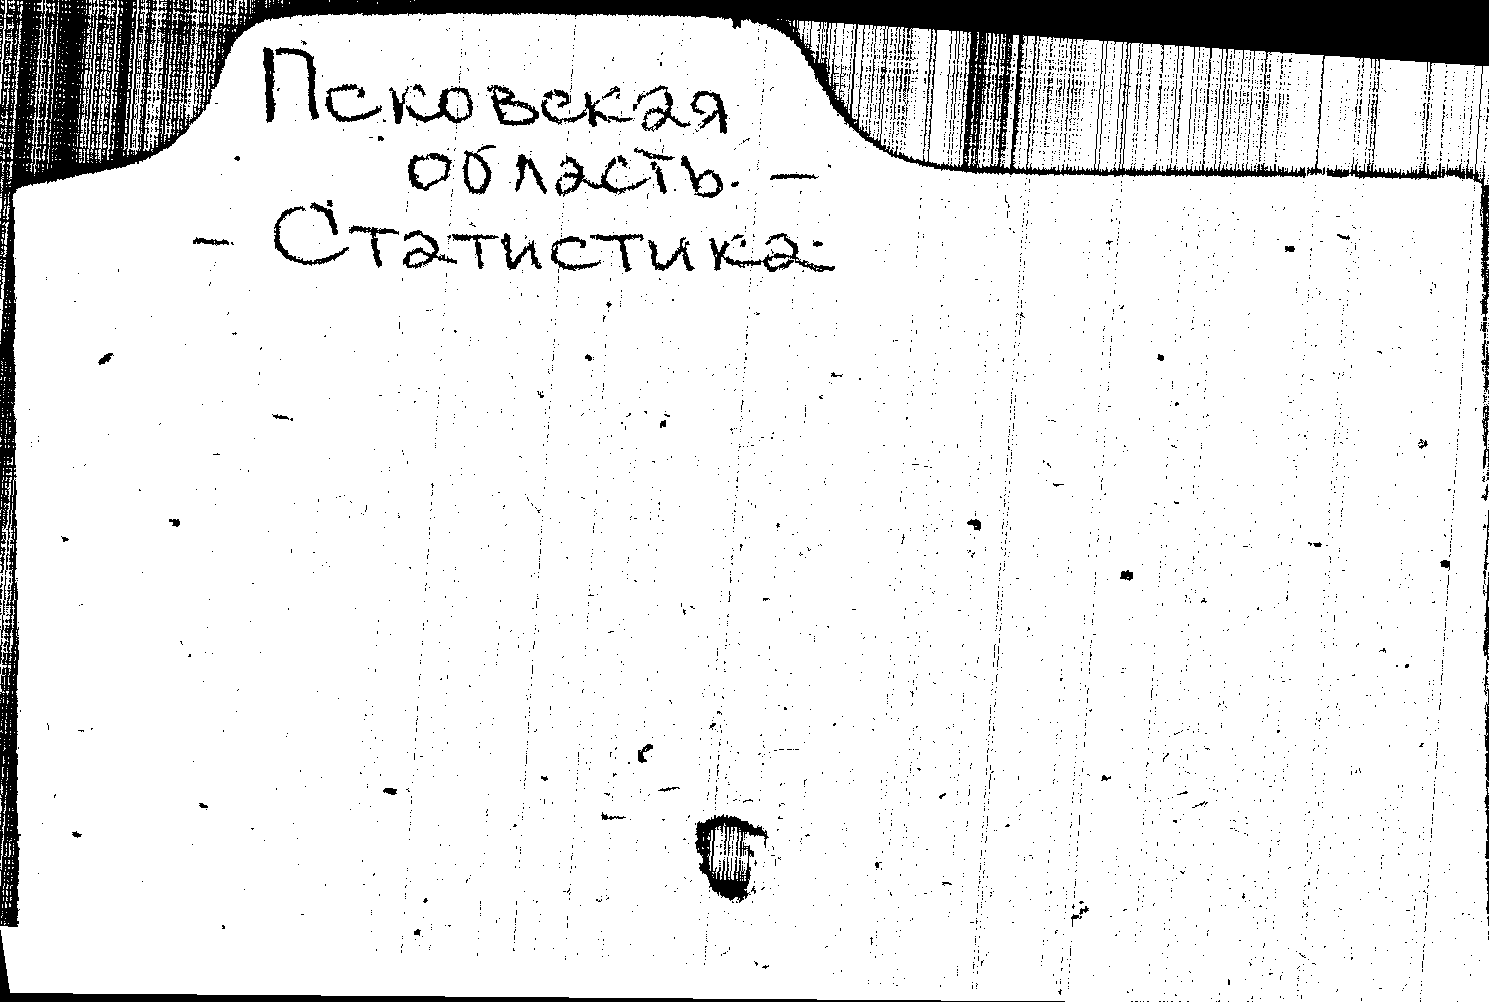 Псковская
область. –
– Статистика.